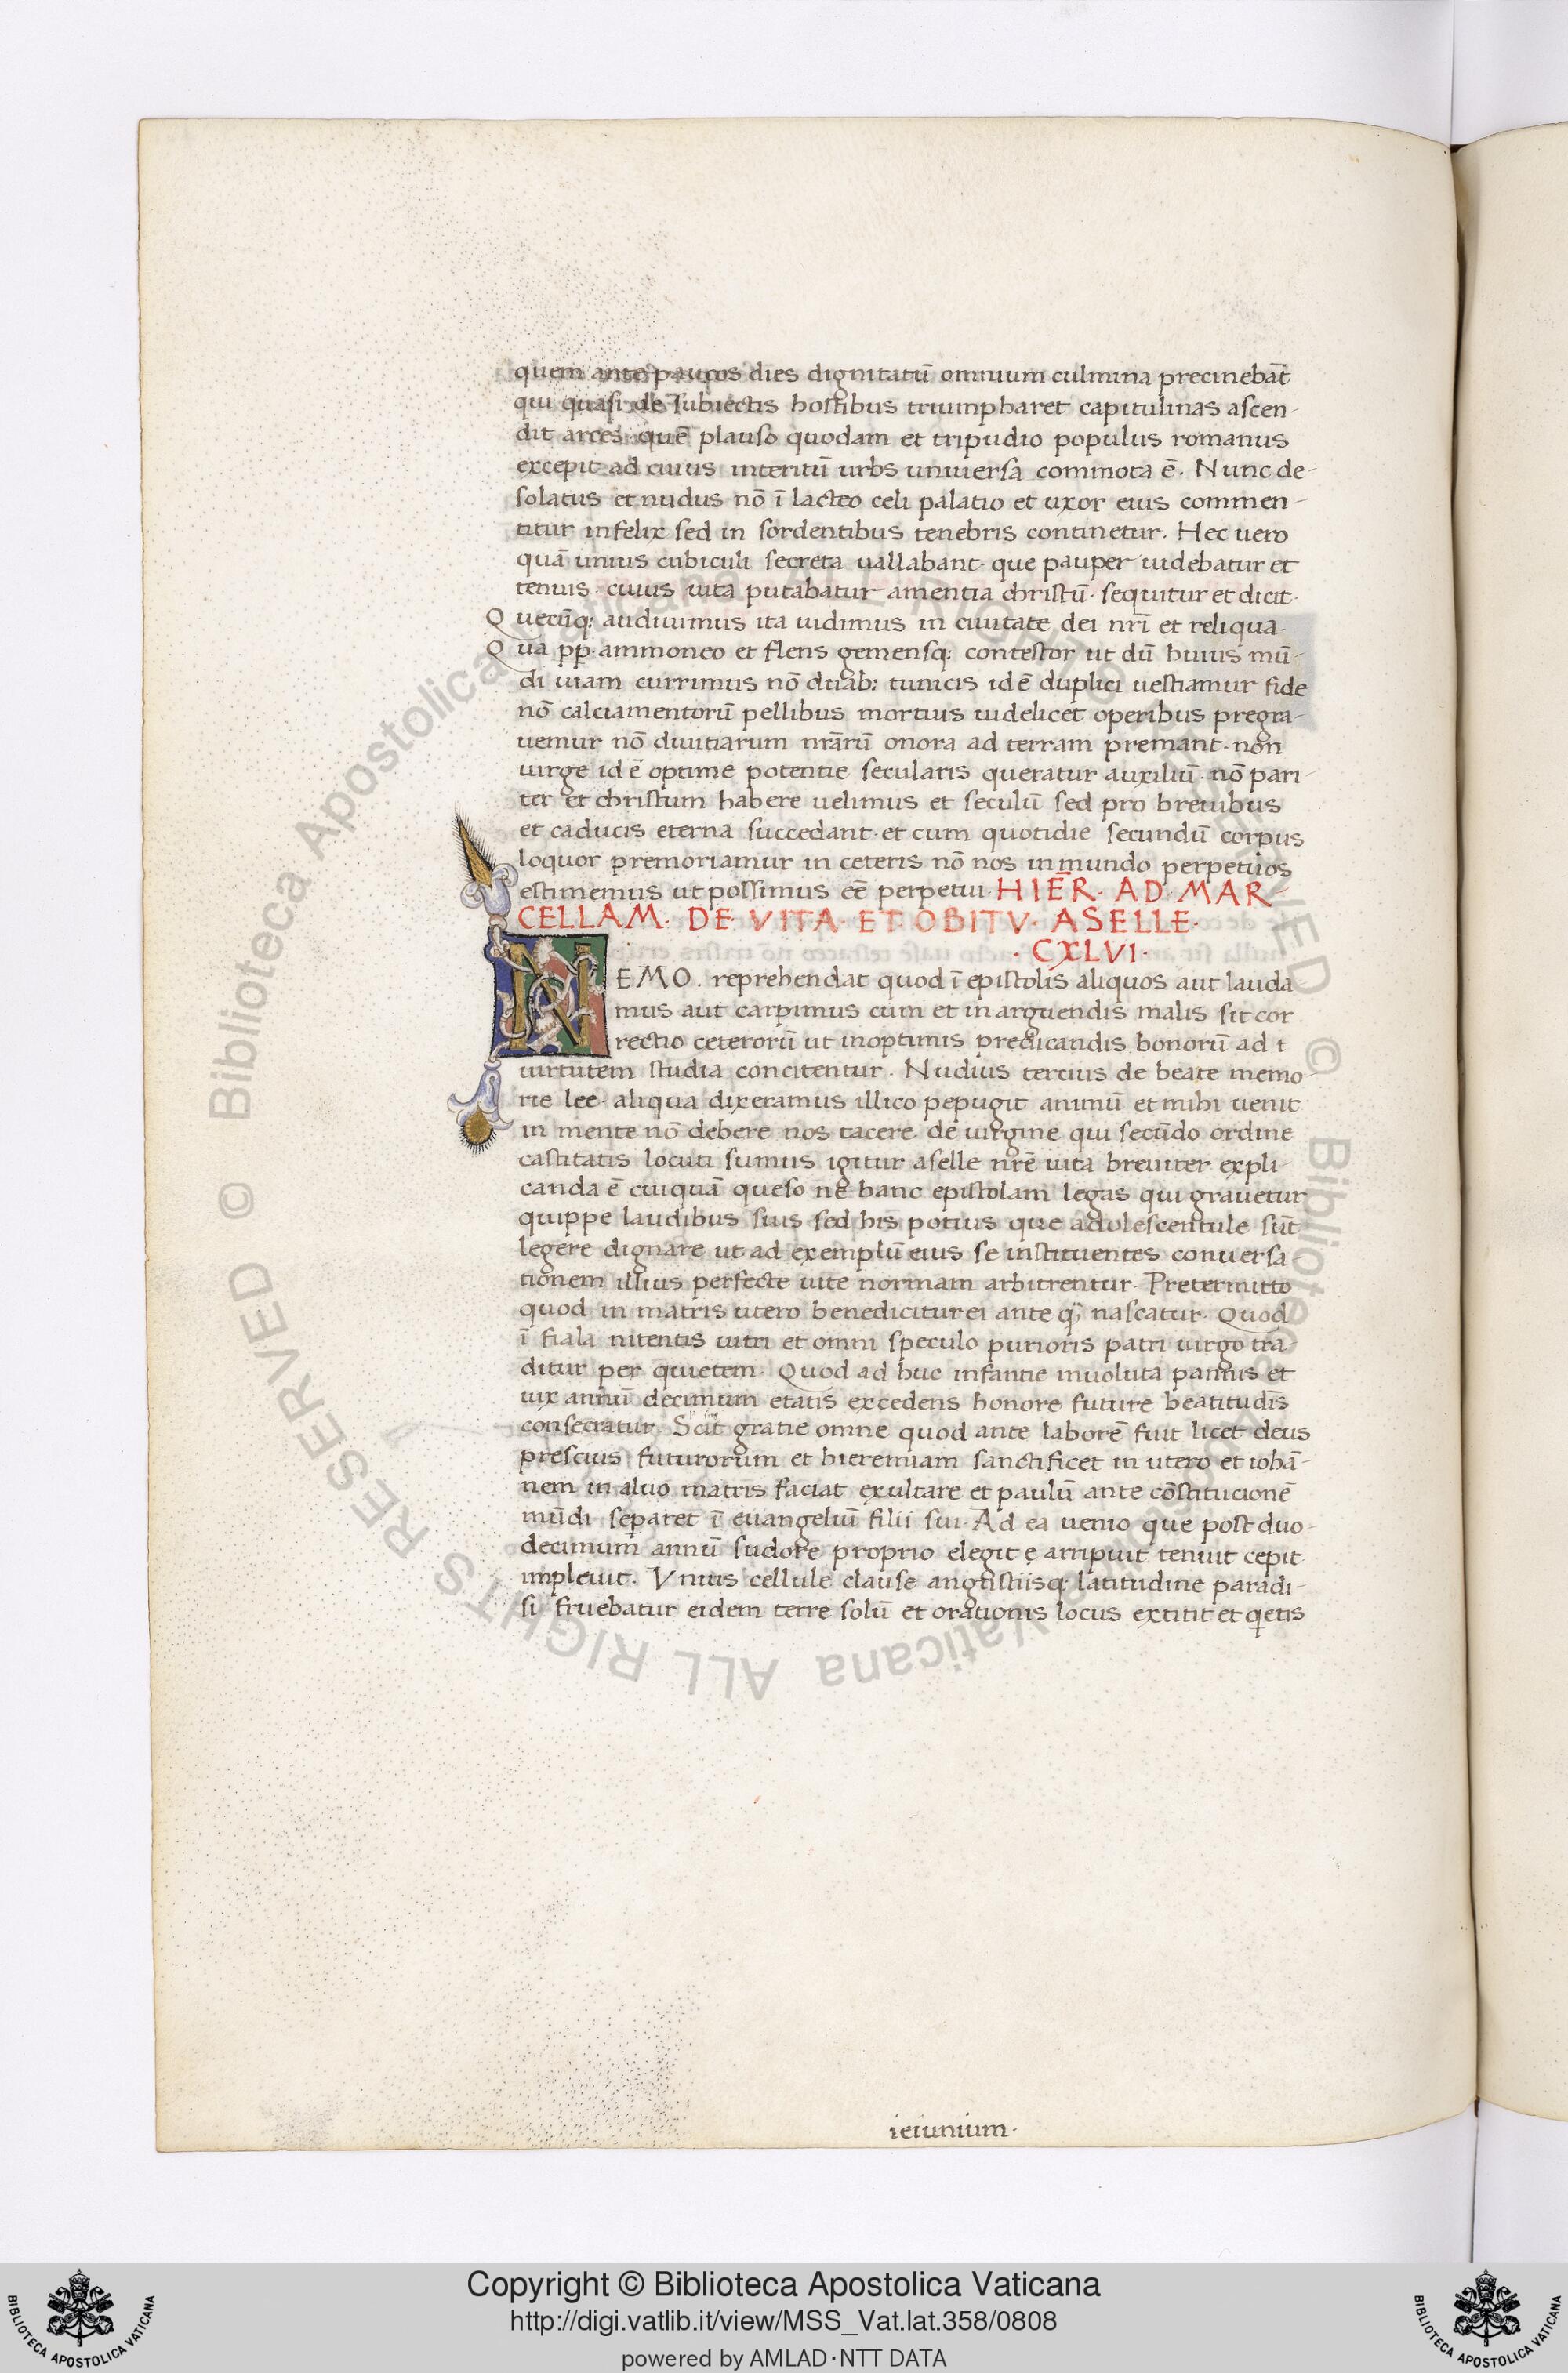 quem ante paucos dies dignitatū omnium culmina precinebāt
qui quasi de subiectis hostibus triumpharet capitulinas ascen-
dit arces· quē plauso quodam et tripudio populus romanus
excepit ad cuius interitū urbs uniuersa commota ē. Nunc de-
solatus et nudus nō ī lacteo celi palatio et uxor eius commen-
titur infelix sed in sordentibus tenebris continetur. Hec uero
quā unius cubiculi secreta uallabant· que pauper uidebatur et
tenuis· cuius uita putabatur amentia christū· sequitur et dicit·
Quecūq: audiuimus ita uidimus in ciuitate dei nrī et reliqua·
Qua pp̄· ammoneo et flens gemensq: contestor ut dū huius mū-
di uiam currimus nō duab: tunicis id ē duplici uestiamur fide
nō calciamentorū pellibus mortuis uidelicet operibus pregra-
uemur nō diuitiarum nrārū onora ad terram premant· non
uirge id ē optime potentie secularis queratur auxiliū· nō pari-
ter et christum habere uelimus et seculū sed pro breuibus
et caducis eterna succedant· et cum quotidie secundū corpus
loquor premoriamur in ceteris nō nos in mundo perpetuos
estimemus ut possimus eē perpetui· HIER̄· AD· MAR-
CELLAM· DE· VITA· ET· OBITV· ASELLE·
· CXLVI·
NEMO. reprehendat quod ī epistolis aliquos aut lauda
mus aut carpimus cum et in arguendis malis sit cor
rectio ceterorū ut in optimis predicandis bonorū ad
uirtutem studia concitentur. Nudius tercius de beate memo-
rie lee· aliqua dixeramus illico pepugit animū et mihi uenit
in mente nō debere nos tacere de uirgine qui secūdo ordine
castitatis locuti sumus igitur aselle nrē uita breuiter expli-
canda ē cui quā queso ne hanc epistolam legas qui grauetur
quippe laudibus suis sed his potius que adolescentule sūt
legere dignare ut ad exemplū eius se instituentes conuersa
tionem illius perfecte uite normam arbitrentur. Pretermitto
quod in matris utero benediciturei ante q̄ nascatur. Quod
ī fiala nitentis uitri et omni speculo purioris patri uirgo tra
ditur per q̄uietem. Quod ad huc infantie inuoluta pannis et
uix annū decimum etatis excedens honore future beatitudis
consecratur. Sit gratie omne quod ante laborē fuit licet deus
prescius futurorum et hieremiam sanctificet in utero et iohā-
nem in aluo matris faciat exultare et paulū ante cōstitucionē
mūdi separet ī euangeliū filii sui· Ad ea uenio que post duo-
decimum annū sudore proprio elegit ę arripuit tenuit cepit
impleuit. Vnius cellule clause angustiisq: latitudine paradi-
si fruebatur eidem terre solū et orationis locus extitit et qetis
ieiunium·
© Biblioteca Apostolica Vaticana ALL RIGHTS RESERVED
Copyright © Biblioteca Apostolica Vaticana
http://digi.vatlib.it/view/MSS_Vat.lat.358/0808
powered by AMLAD·NTT DATA
BIBLIOTECA APOSTOLICA VATICANA
BIBLIOTECA APOSTOLICA VATICANA